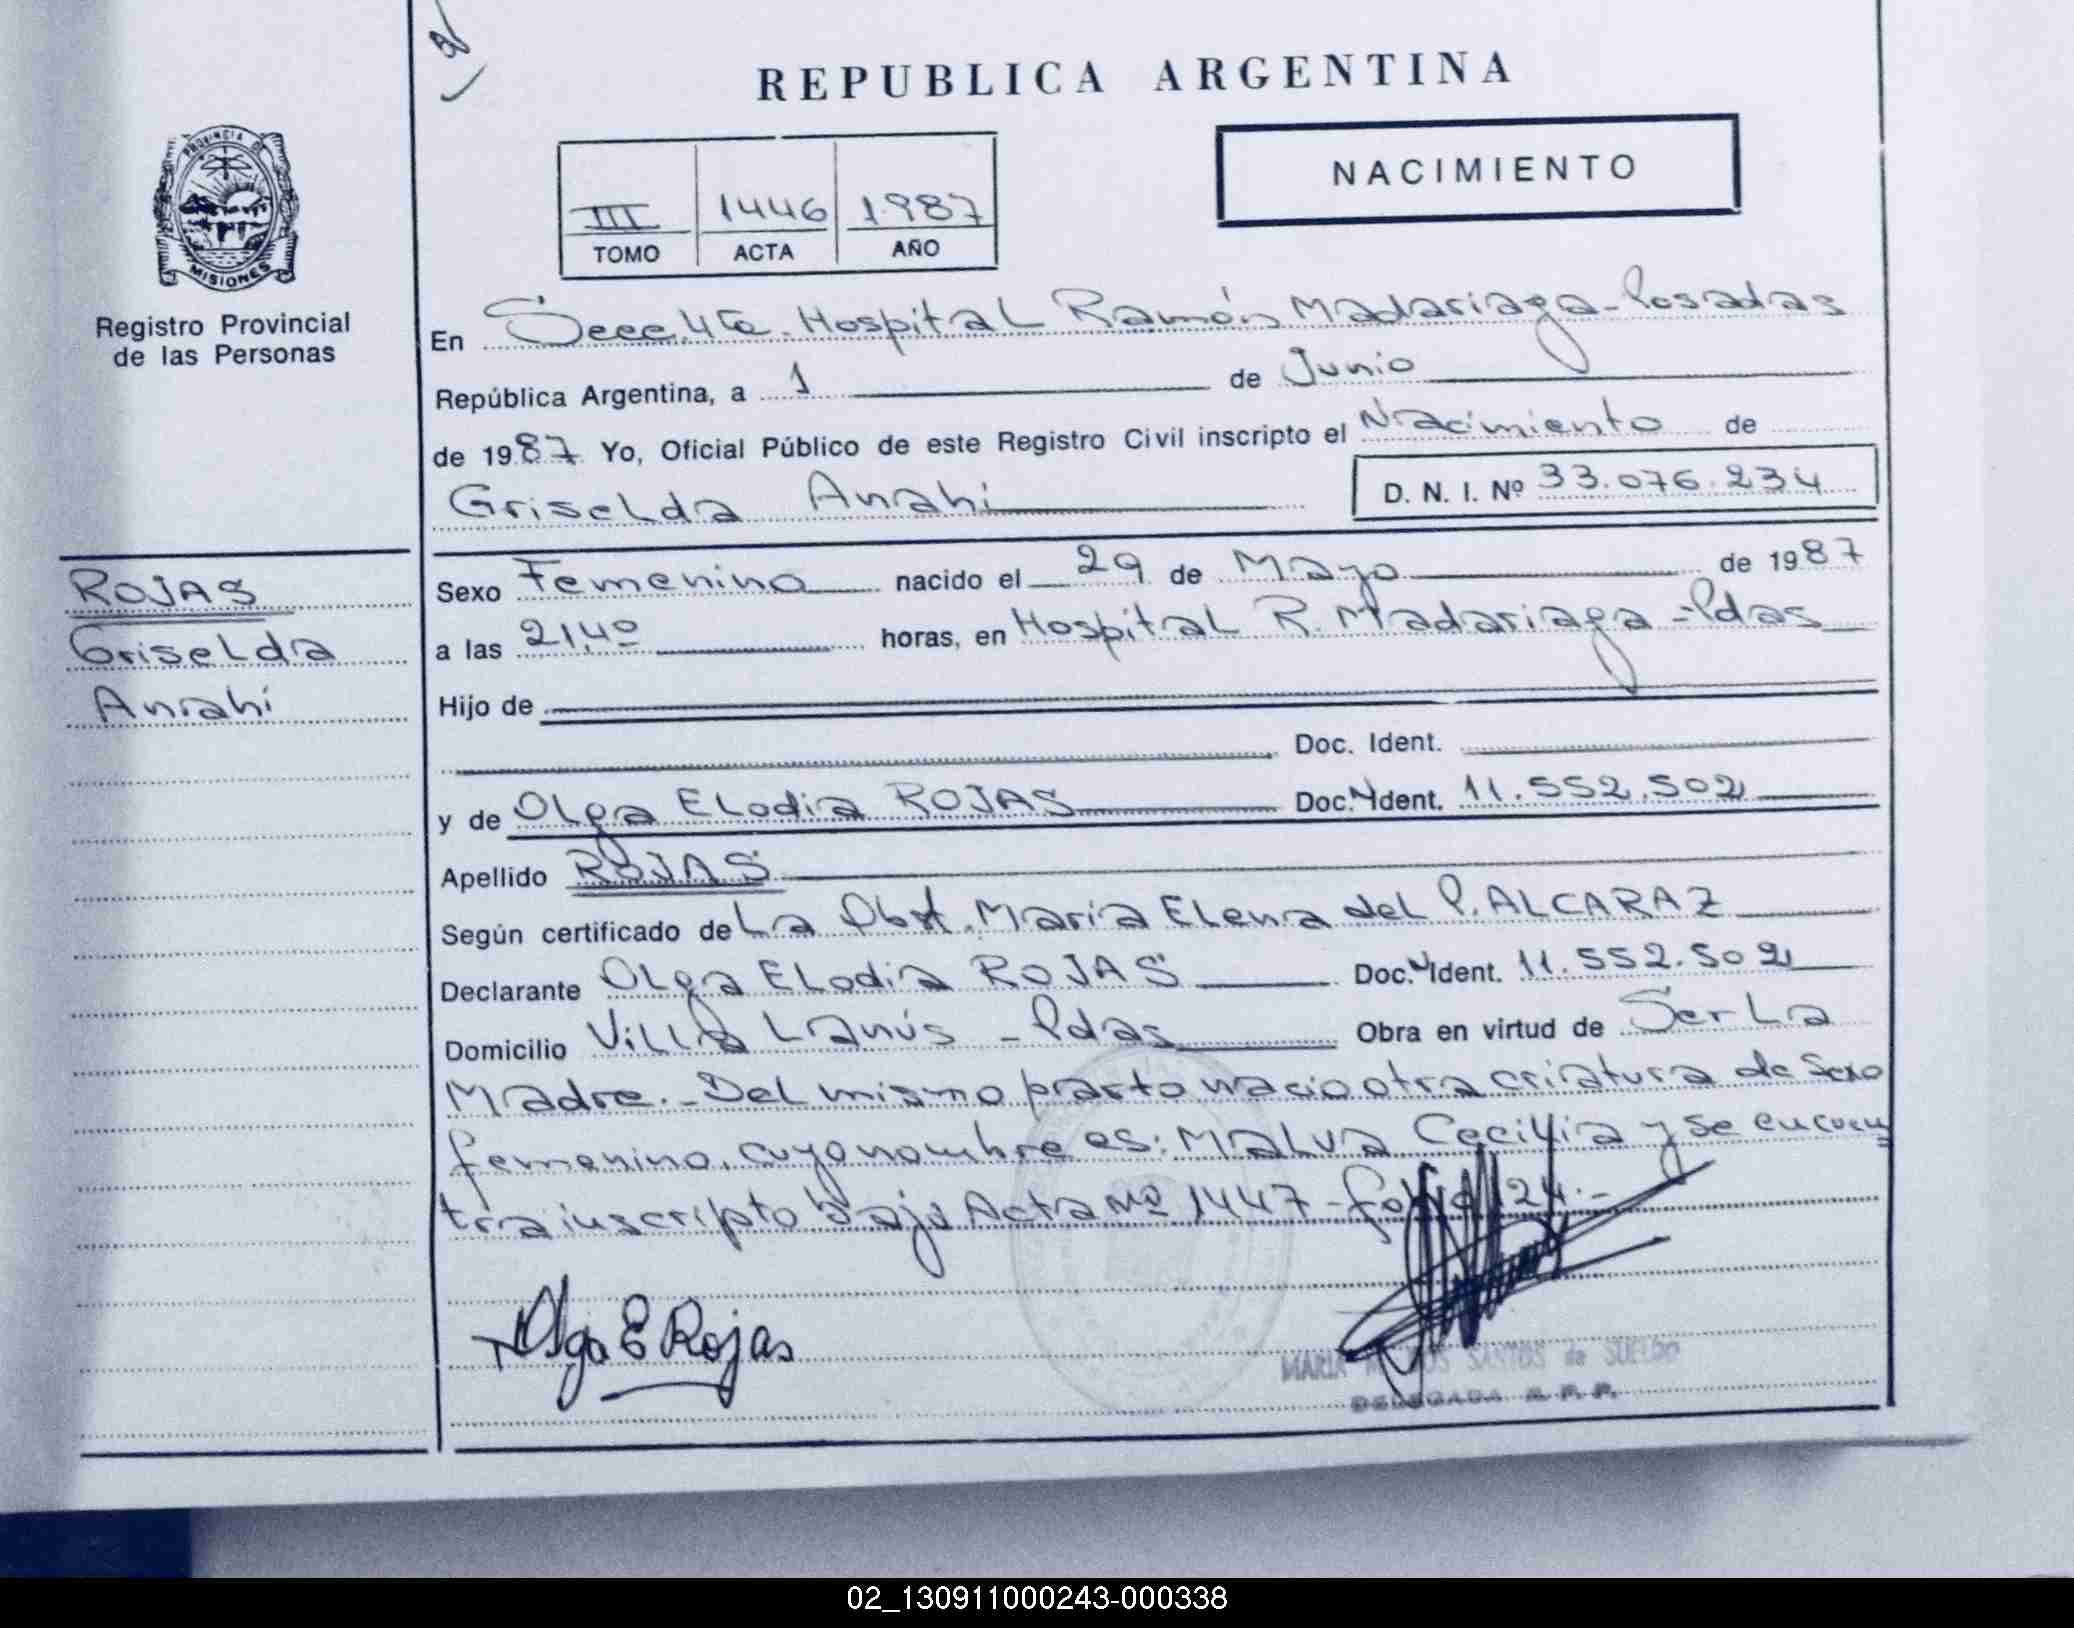 REPUBLICA ARGENTINA
NACIMIENTO
III 1446 1987
TOMO ACTA AÑO
PROVINCIA DE
MISIONES
Registro Provincial
de las Personas
En Secc. 4ta. Hospital Ramón Madariaga - Posadas
República Argentina, a 1 de Junio
de 1987 Yo, Oficial Público de este Registro Civil inscripto el Nacimiento de
Griselda Anahi
D. N. I. Nº 33.076.234
ROJAS
Griselda
Anahi
Sexo Femenino nacido el 29 de Mayo de 1987
a las 21,40 horas, en Hospital R. Madariaga - Pdas
Hijo de
Doc. Ident.
y de Olga Elodia ROJAS Doc. Ident. 11.552.502
Apellido ROJAS
Según certificado de La Obst. María Elena del P. ALCARAZ
Declarante Olga Elodia ROJAS Doc. Ident. 11.552.502
Domicilio Villa Lanús - Pdas Obra en virtud de Ser La
Madre. - Del mismo parto nacio otra criatura de Sexo
femenino, cuyo nombre es: Malva Cecilia y se encuen
tra inscripto bajo Acta Nº 1447 - folio 124.-
Olga E Rojas
MARIA SANTOS de SUELDO
DELEGADA R. P. P.
02_130911000243-000338